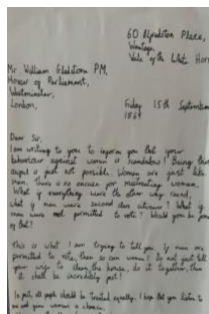 60 Alfredston Place,
Wantage,
Vale of the White Horse
Mr William Gladstone P.M,
House of Parliament,
Westminster,
London,
Friday 15th September
Dear Sir,
I am writing to you to inform you that your
behaviour against women is scandalous! Being this
is just not possible. Women are just like
men. There is no excuse for mistreating women.
What if everything were the other way round,
what if men were second class citizens? What if
men were not permitted to vote? Would you be
of that?
This is what I am trying to tell you. If men are
permitted to vote, then so can women! Do not just tell
your wife to clean the house, do it together, then
it shall be incredibly just!
all people should be treated equally. I hope that you listen to